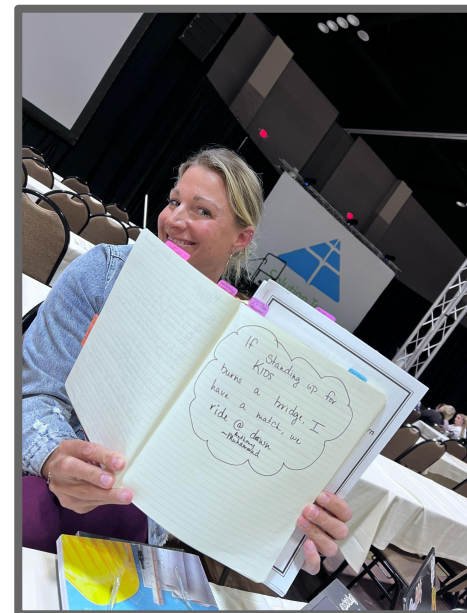 If Standing up for
KIDS
burns a bridge, I
have a match, we
ride @ dawn
Muhammad